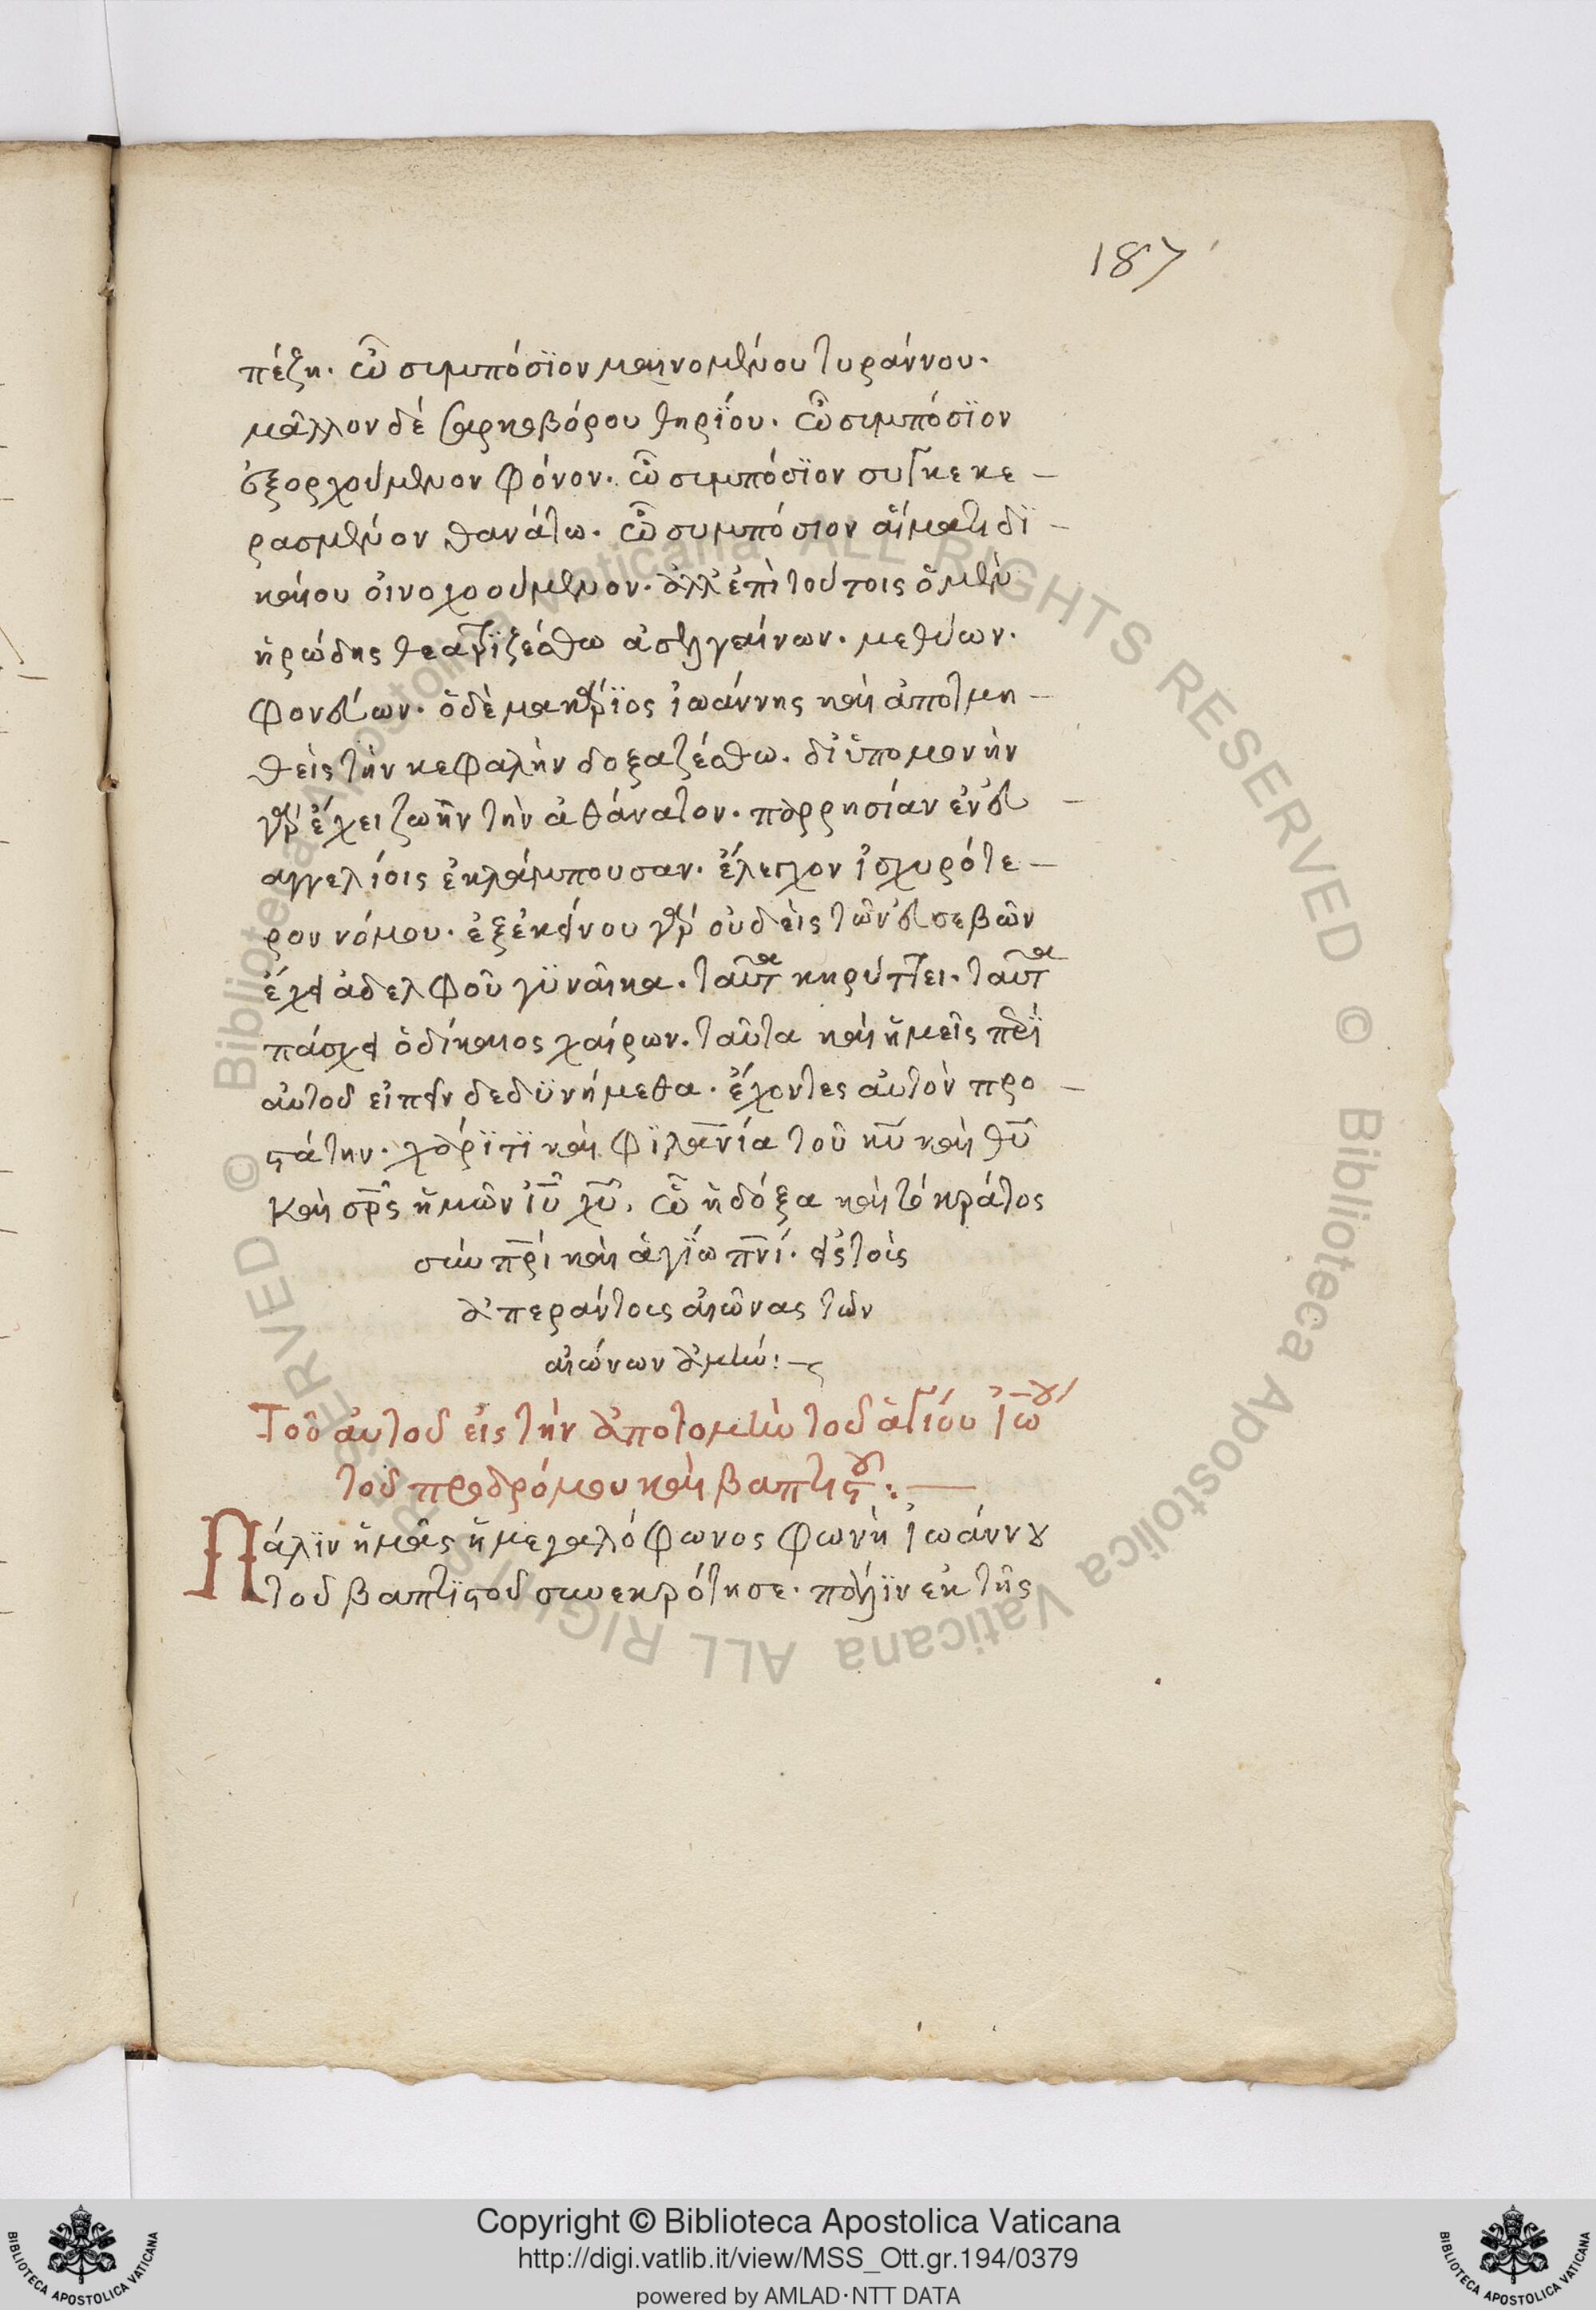 187
πέζη. ὦ συμπόσϊον μαινομένου τυράννου.
μᾶλλον δέ σαρκοβόρου θηρϊου. ὦ συμπόσϊον
ἐξορχούμενον φόνον. ὦ συμπόσϊον συγκεκε-
ρασμένον θανάτω. ὦ συμπόσιον αἵματι δϊ-
καίου οἰνοχοούμενον. ἀλλ' ἐπὶ τούτοις ὁ μὲν
ἡρώδης θεατρϊζέσθω ἀσελγαίνων. μεθύων.
φονεύων. ὁ δὲ μακάρϊος ἰωάννης καὶ ἀποτμη-
θεὶς τὴν κεφαλὴν δοξαζέσθω. δι' ὑπομονὴν
γὰρ ἔχει ζωὴν τὴν ἀθάνατον. παρρησίαν ἐν εὐ-
αγγελίοις ἐκλάμπουσαν. ἔλεγχον ἰσχυρότε-
ρον νόμου. ἐξ ἐκείνου γὰρ οὐδεὶς τῶν εὐσεβῶν
ἔχει ἀδελφοῦ γϋναῖκα. ταῦτα κηρύττει. ταῦτα
πάσχει ὁ δίκαιος χαίρων. ταῦτα καὶ ἡμεῖς πεϊ
αὐτοῦ εἰπεῖν δεδϋνήμεθα. ἔχοντες αὐτὸν προ-
στάτην. χάρϊτϊ καὶ φϊλανία τοῦ κυ καὶ θυ
καὶ σρς ἡμῶν ιυ χυ. ὦ ἡ δόξα καὶ τὸ κράτος
σὺν πρι καὶ ἁγϊω πνι. εἰς τοὺς
ἀπεράντους αἰῶνας τῶν
αἰώνων ἀμήν:-
Τοῦ αὐτοῦ εἰς τὴν ἀποτομὴν τοῦ ἁγίου Ἰωου
τοῦ προδρόμου καὶ βαπτιστοῦ:—
Πάλϊν ἡμᾶς ἡ μεγαλόφωνος φωνὴ Ἰωάννου
τοῦ βαπτϊστοῦ συνεκρότησε. πάλϊν ἐκ τῆς
© Biblioteca Apostolica Vaticana ALL RIGHTS RESERVED © Biblioteca Apostolica Vaticana ALL RIGHTS RESERVED
Copyright © Biblioteca Apostolica Vaticana
http://digi.vatlib.it/view/MSS_Ott.gr.194/0379
powered by AMLAD·NTT DATA
BIBLIOTECA APOSTOLICA VATICANA
BIBLIOTECA APOSTOLICA VATICANA